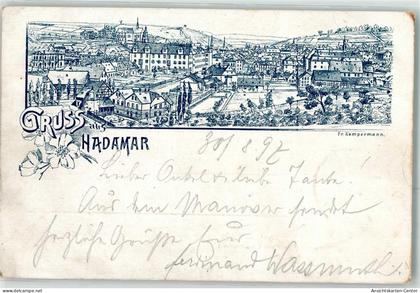 Gruss aus
HADAMAR
Fr. Kampermann.
30/8 97
Lieber Onkel & liebe Tante!
Aus dem Manover sendet
herzliche Grüße Euer
Ferdinand Wassmuth
delcampe.net
Ansichtskarten-Center